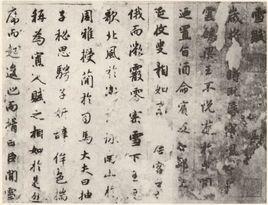 雪賦
歲將暮
雲繁梁王不悅遊於
迺置旨酒命賓友召鄒生
延枚叟相如末至居客之
俄而微霰零密雪下王乃
歌北風於衛詩詠南山於
周雅授簡於司馬大夫曰抽
子秘思騁子妍辭侔色揣
稱為寡人賦之相如於是避
席而起逡巡而揖曰臣聞雪